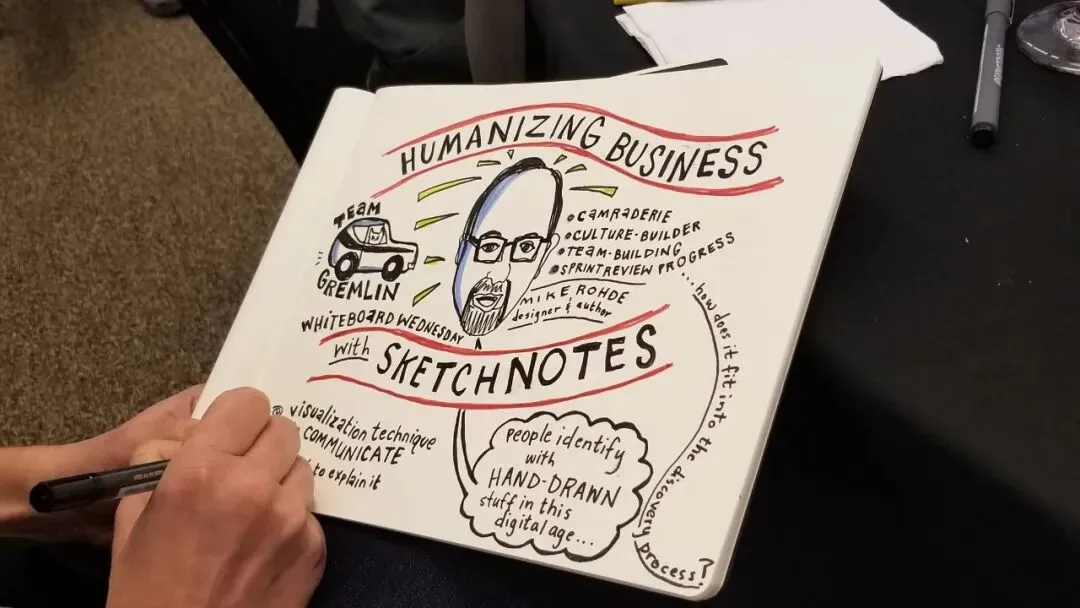 HUMANIZING BUSINESS
TEAM
GREMLIN
• CAMRADERIE
• CULTURE-BUILDER
• TEAM-BUILDING
• SPRINT REVIEW PROGRESS
MIKE ROHDE
designer & author
WHITEBOARD WEDNESDAY
with SKETCHNOTES
visualization technique
COMMUNICATE
to explain it
people identify
with
HAND-DRAWN
stuff in this
digital age...
...how does it fit into the discovery process?